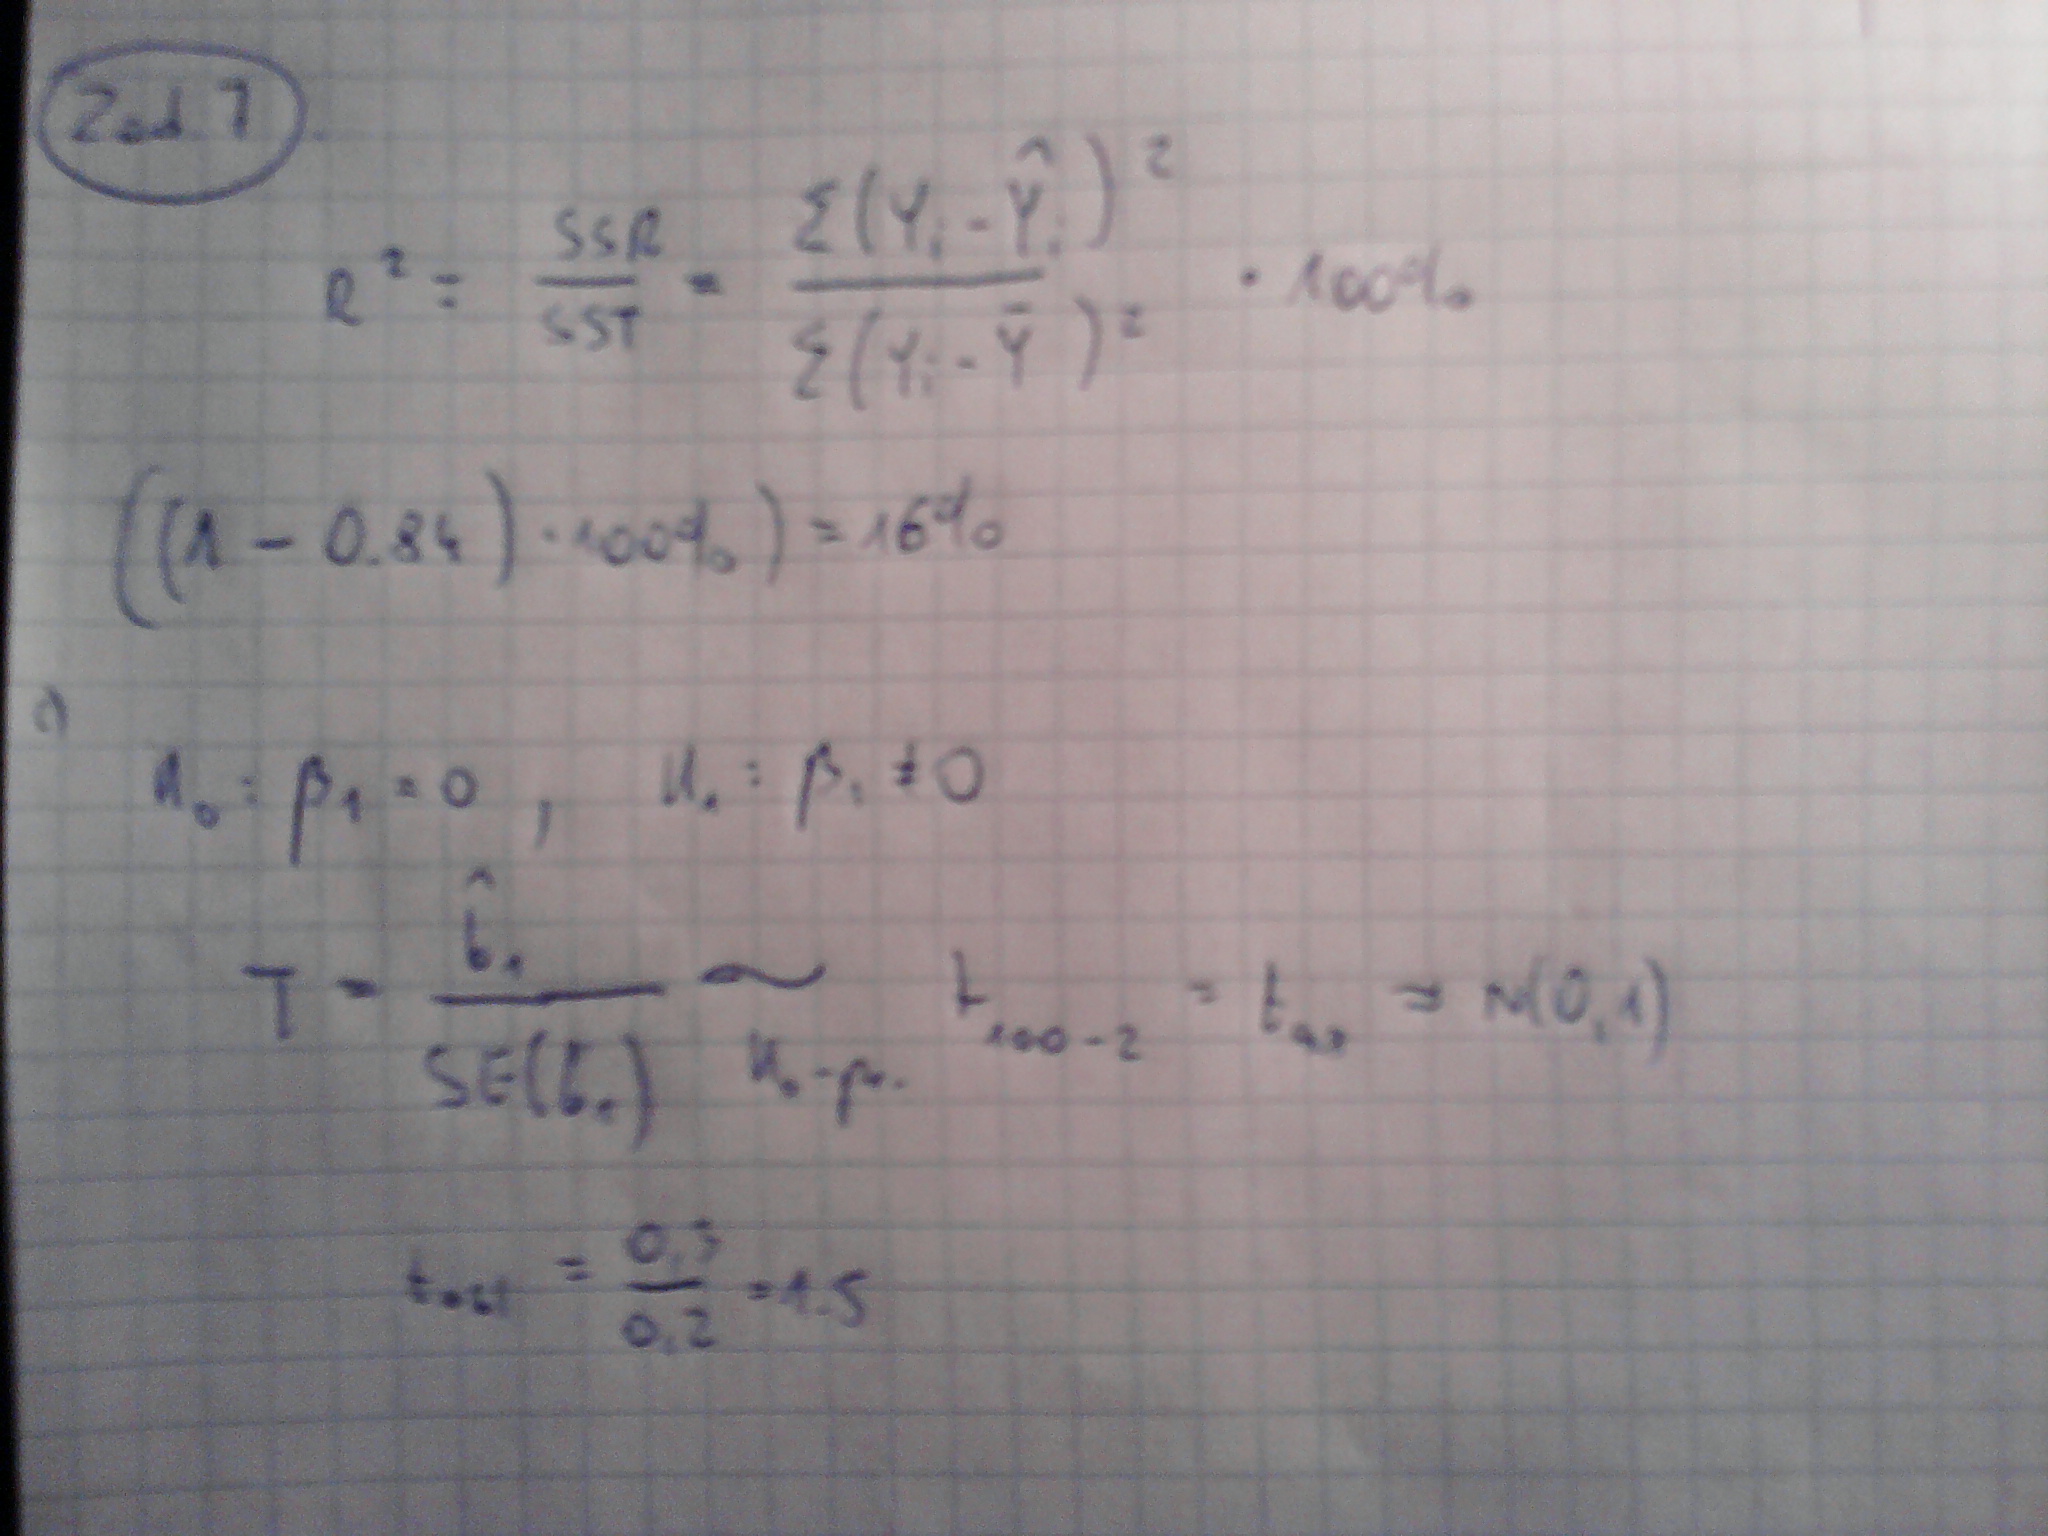 Zad 1
R² = SSR / SST = Σ(Yᵢ - Ŷᵢ)² / Σ(Yᵢ - Ȳ)² · 100%
((1 - 0.84) · 100%) = 16%
c)
H₀ : β₁ = 0 , H₁ : β₁ ≠ 0
T = b̂₁ / SE(b₁) ~ H₀-pr. t₁₀₀₋₂ = t₉₈ = N(0,1)
= 0,3 / 0,2 = 1.5